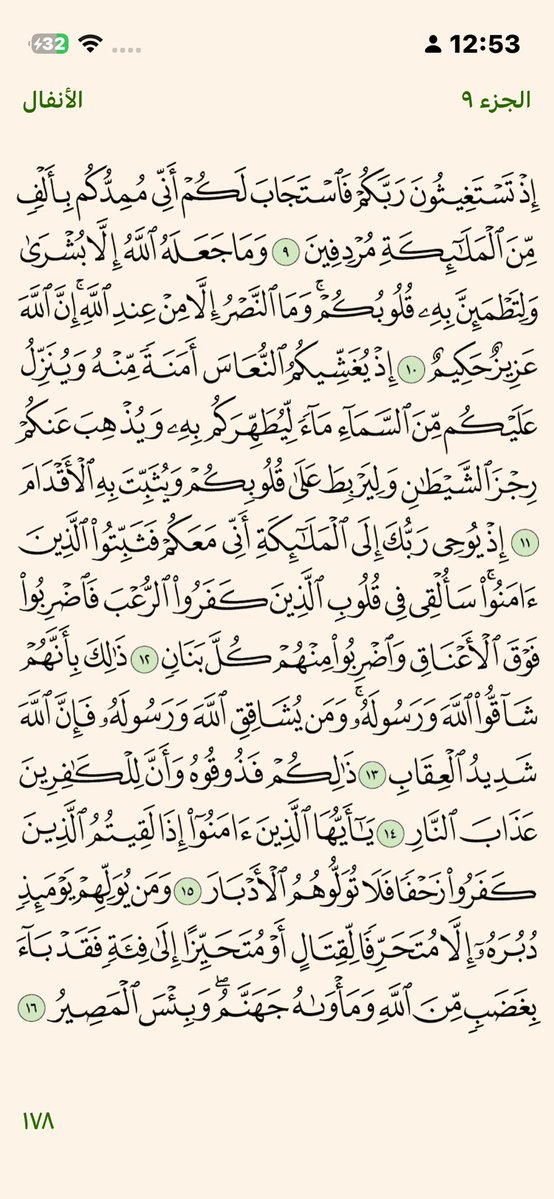 32 12:53
الأنفال الجزء ٩
إِذْ تَسْتَغِيثُونَ رَبَّكُمْ فَٱسْتَجَابَ لَكُمْ أَنِّى مُمِدُّكُم بِأَلْفٍ
مِّنَ ٱلْمَلَٰٓئِكَةِ مُرْدِفِينَ ٩ وَمَا جَعَلَهُ ٱللَّهُ إِلَّا بُشْرَىٰ
وَلِتَطْمَئِنَّ بِهِۦ قُلُوبُكُمْ ۚ وَمَا ٱلنَّصْرُ إِلَّا مِنْ عِندِ ٱللَّهِ ۚ إِنَّ ٱللَّهَ
عَزِيزٌ حَكِيمٌ ١٠ إِذْ يُغَشِّيكُمُ ٱلنُّعَاسَ أَمَنَةً مِّنْهُ وَيُنَزِّلُ
عَلَيْكُم مِّنَ ٱلسَّمَآءِ مَآءً لِّيُطَهِّرَكُم بِهِۦ وَيُذْهِبَ عَنكُمْ
رِجْزَ ٱلشَّيْطَٰنِ وَلِيَرْبِطَ عَلَىٰ قُلُوبِكُمْ وَيُثَبِّتَ بِهِ ٱلْأَقْدَامَ
١١ إِذْ يُوحِى رَبُّكَ إِلَى ٱلْمَلَٰٓئِكَةِ أَنِّى مَعَكُمْ فَثَبِّتُوا۟ ٱلَّذِينَ
ءَامَنُوا۟ ۚ سَأُلْقِى فِى قُلُوبِ ٱلَّذِينَ كَفَرُوا۟ ٱلرُّعْبَ فَٱضْرِبُوا۟
فَوْقَ ٱلْأَعْنَاقِ وَٱضْرِبُوا۟ مِنْهُمْ كُلَّ بَنَانٍ ١٢ ذَٰلِكَ بِأَنَّهُمْ
شَآقُّوا۟ ٱللَّهَ وَرَسُولَهُۥ ۚ وَمَن يُشَاقِقِ ٱللَّهَ وَرَسُولَهُۥ فَإِنَّ ٱللَّهَ
شَدِيدُ ٱلْعِقَابِ ١٣ ذَٰلِكُمْ فَذُوقُوهُ وَأَنَّ لِلْكَٰفِرِينَ
عَذَابَ ٱلنَّارِ ١٤ يَٰٓأَيُّهَا ٱلَّذِينَ ءَامَنُوٓا۟ إِذَا لَقِيتُمُ ٱلَّذِينَ
كَفَرُوا۟ زَحْفًا فَلَا تُوَلُّوهُمُ ٱلْأَدْبَارَ ١٥ وَمَن يُوَلِّهِمْ يَوْمَئِذٍ
دُبُرَهُۥٓ إِلَّا مُتَحَرِّفًا لِّقِتَالٍ أَوْ مُتَحَيِّزًا إِلَىٰ فِئَةٍ فَقَدْ بَآءَ
بِغَضَبٍ مِّنَ ٱللَّهِ وَمَأْوَىٰهُ جَهَنَّمُ ۖ وَبِئْسَ ٱلْمَصِيرُ ١٦
١٧٨